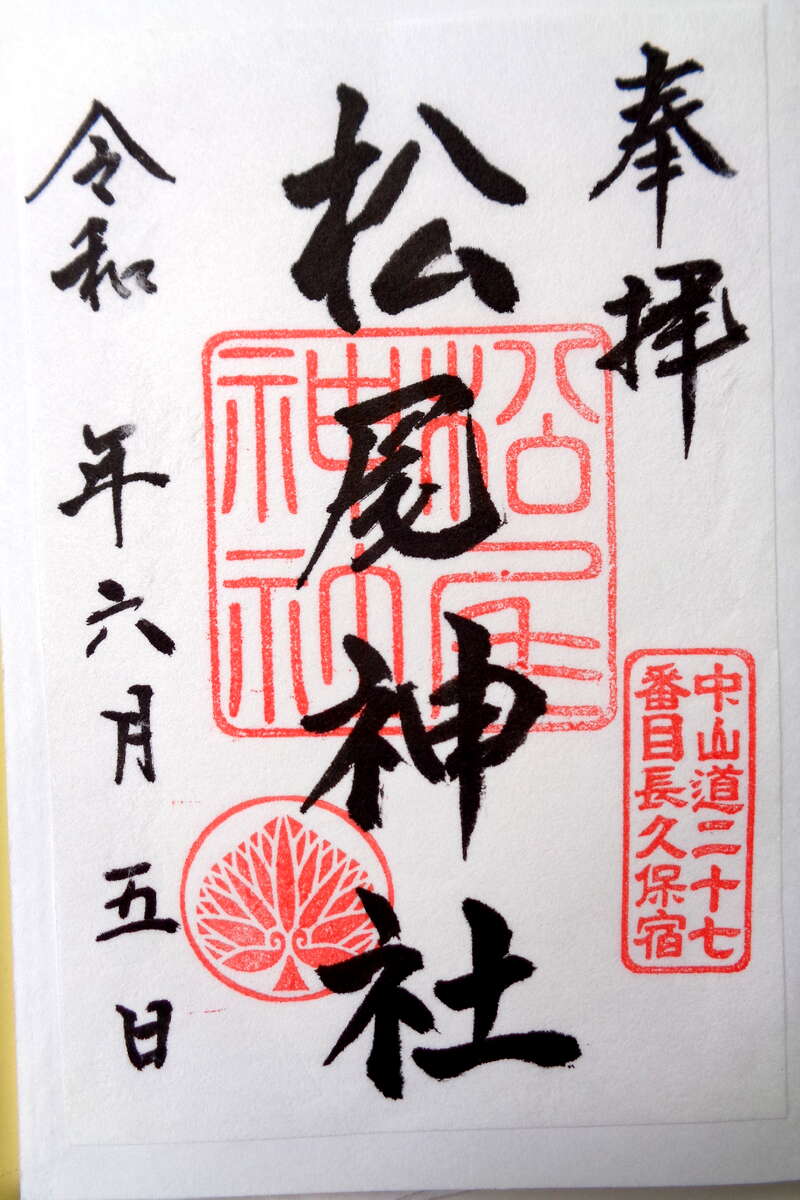 奉拝
中山道二十七
番目長久保宿
松尾神社
松尾
神社
令和 年六月五日